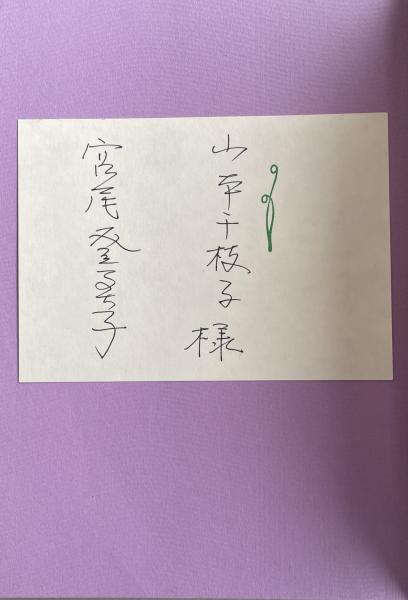 山本千枝子様
宮尾登美子